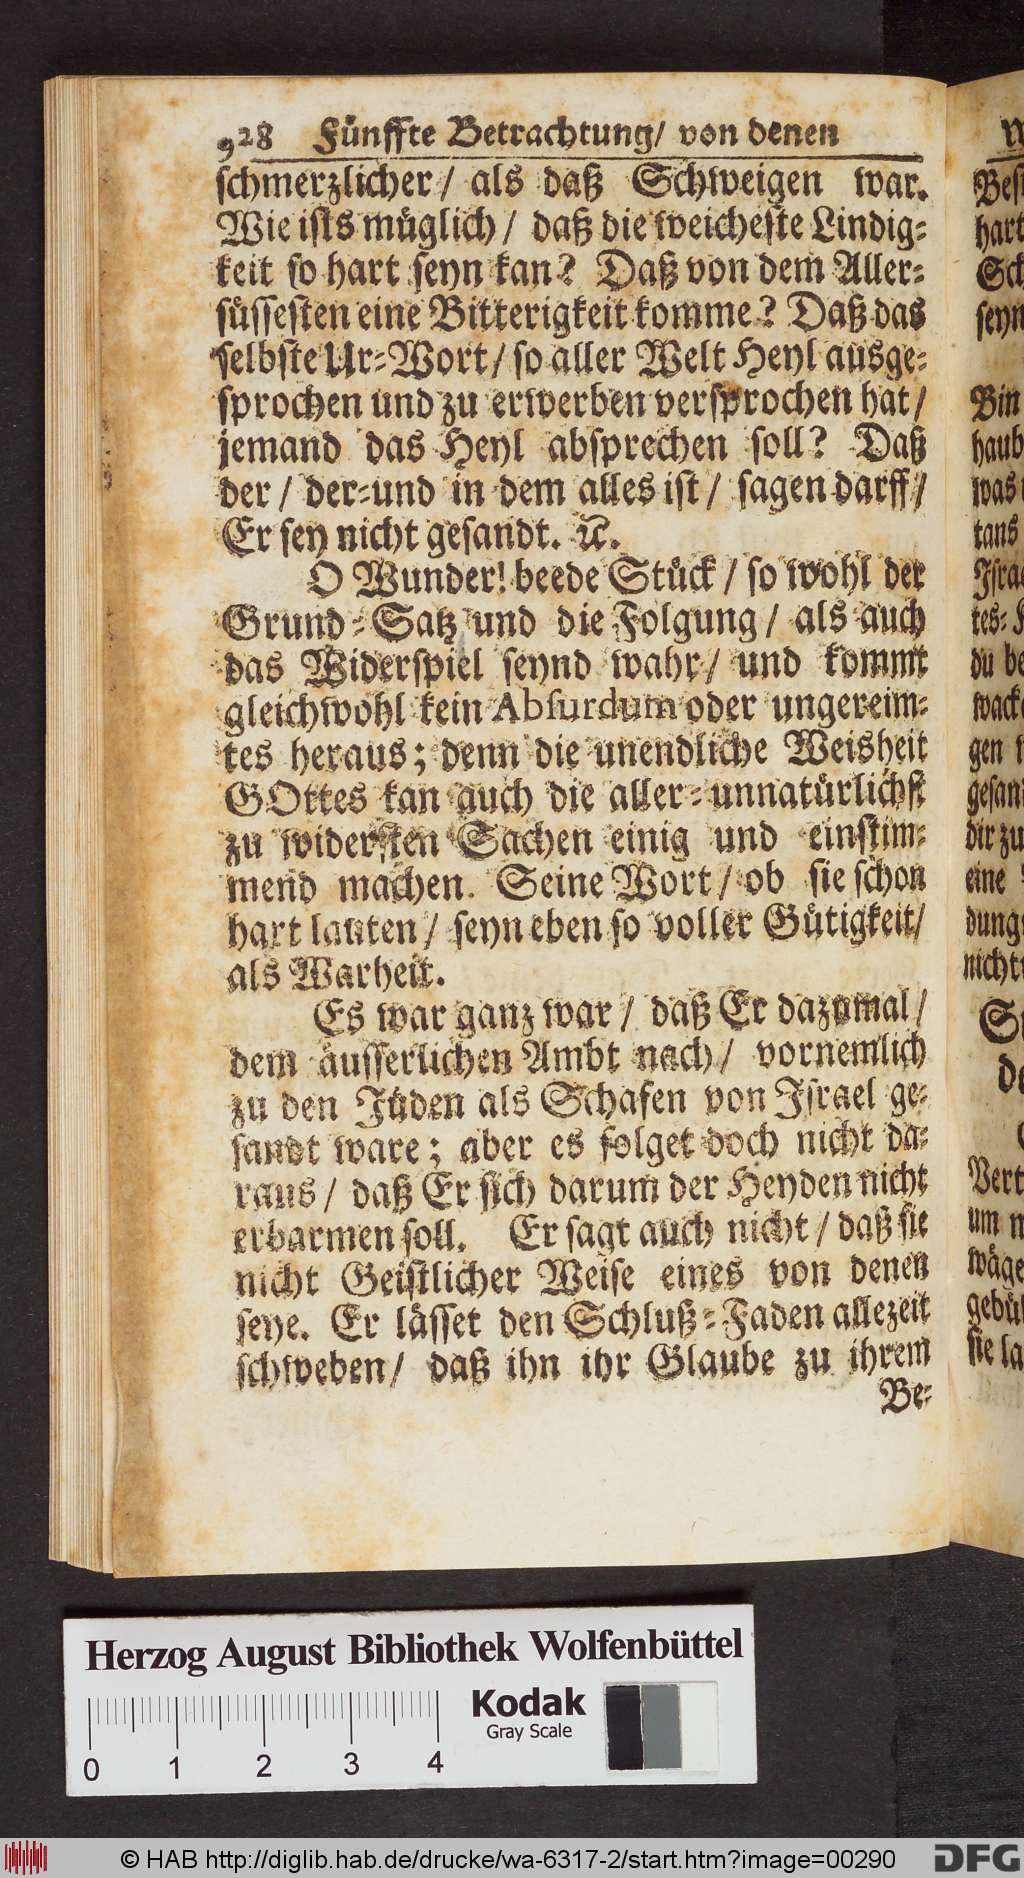 928 Fünffte Betrachtung/ von denen
schmerzlicher/ als daß Schweigen war.
Wie ists müglich/ daß die weicheste Lindig-
keit so hart seyn kan? Daß von dem Aller-
süssesten eine Bitterigkeit komme? Daß das
selbste Ur-Wort/ so aller Welt Heyl ausge-
sprochen und zu erwerben versprochen hat/
jemand das Heyl absprechen soll? Daß
der/ der-und in dem alles ist/ sagen darff/
Er sey nicht gesandt. ꝛc.
O Wunder! beede Stück/ so wohl der
Grund-Satz und die Folgung/ als auch
das Widerspiel seynd wahr/ und kommt
gleichwohl kein Absurdum oder ungereim-
tes heraus; denn die unendliche Weisheit
GOttes kan auch die aller-unnatürlichst
zu widersten Sachen einig und einstim-
mend machen. Seine Wort/ ob sie schon
hart lauten/ seyn eben so voller Gütigkeit/
als Warheit.
Es war ganz war/ daß Er dazumal/
dem äusserlichen Ambt nach/ vornemlich
zu den Jüden als Schafen von Israel ge-
sandt ware; aber es folget doch nicht da-
raus/ daß Er sich darum der Heyden nicht
erbarmen soll. Er sagt auch nicht/ daß sie
nicht Geistlicher Weise eines von denen
seye. Er lässet den Schluß-Faden allezeit
schweben/ daß ihn ihr Glaube zu ihrem
Be-
Bes
hart
Sch
seyn
Bin
haub
was
tans
Isra
tes-
du be
wack
gen
gesan
dir zu
eine
dung
nicht
de
Vert
um
wäge
gebü
sie la
Herzog August Bibliothek Wolfenbüttel
Kodak
Gray Scale
0 1 2 3 4
© HAB http://diglib.hab.de/drucke/wa-6317-2/start.htm?image=00290
DFG